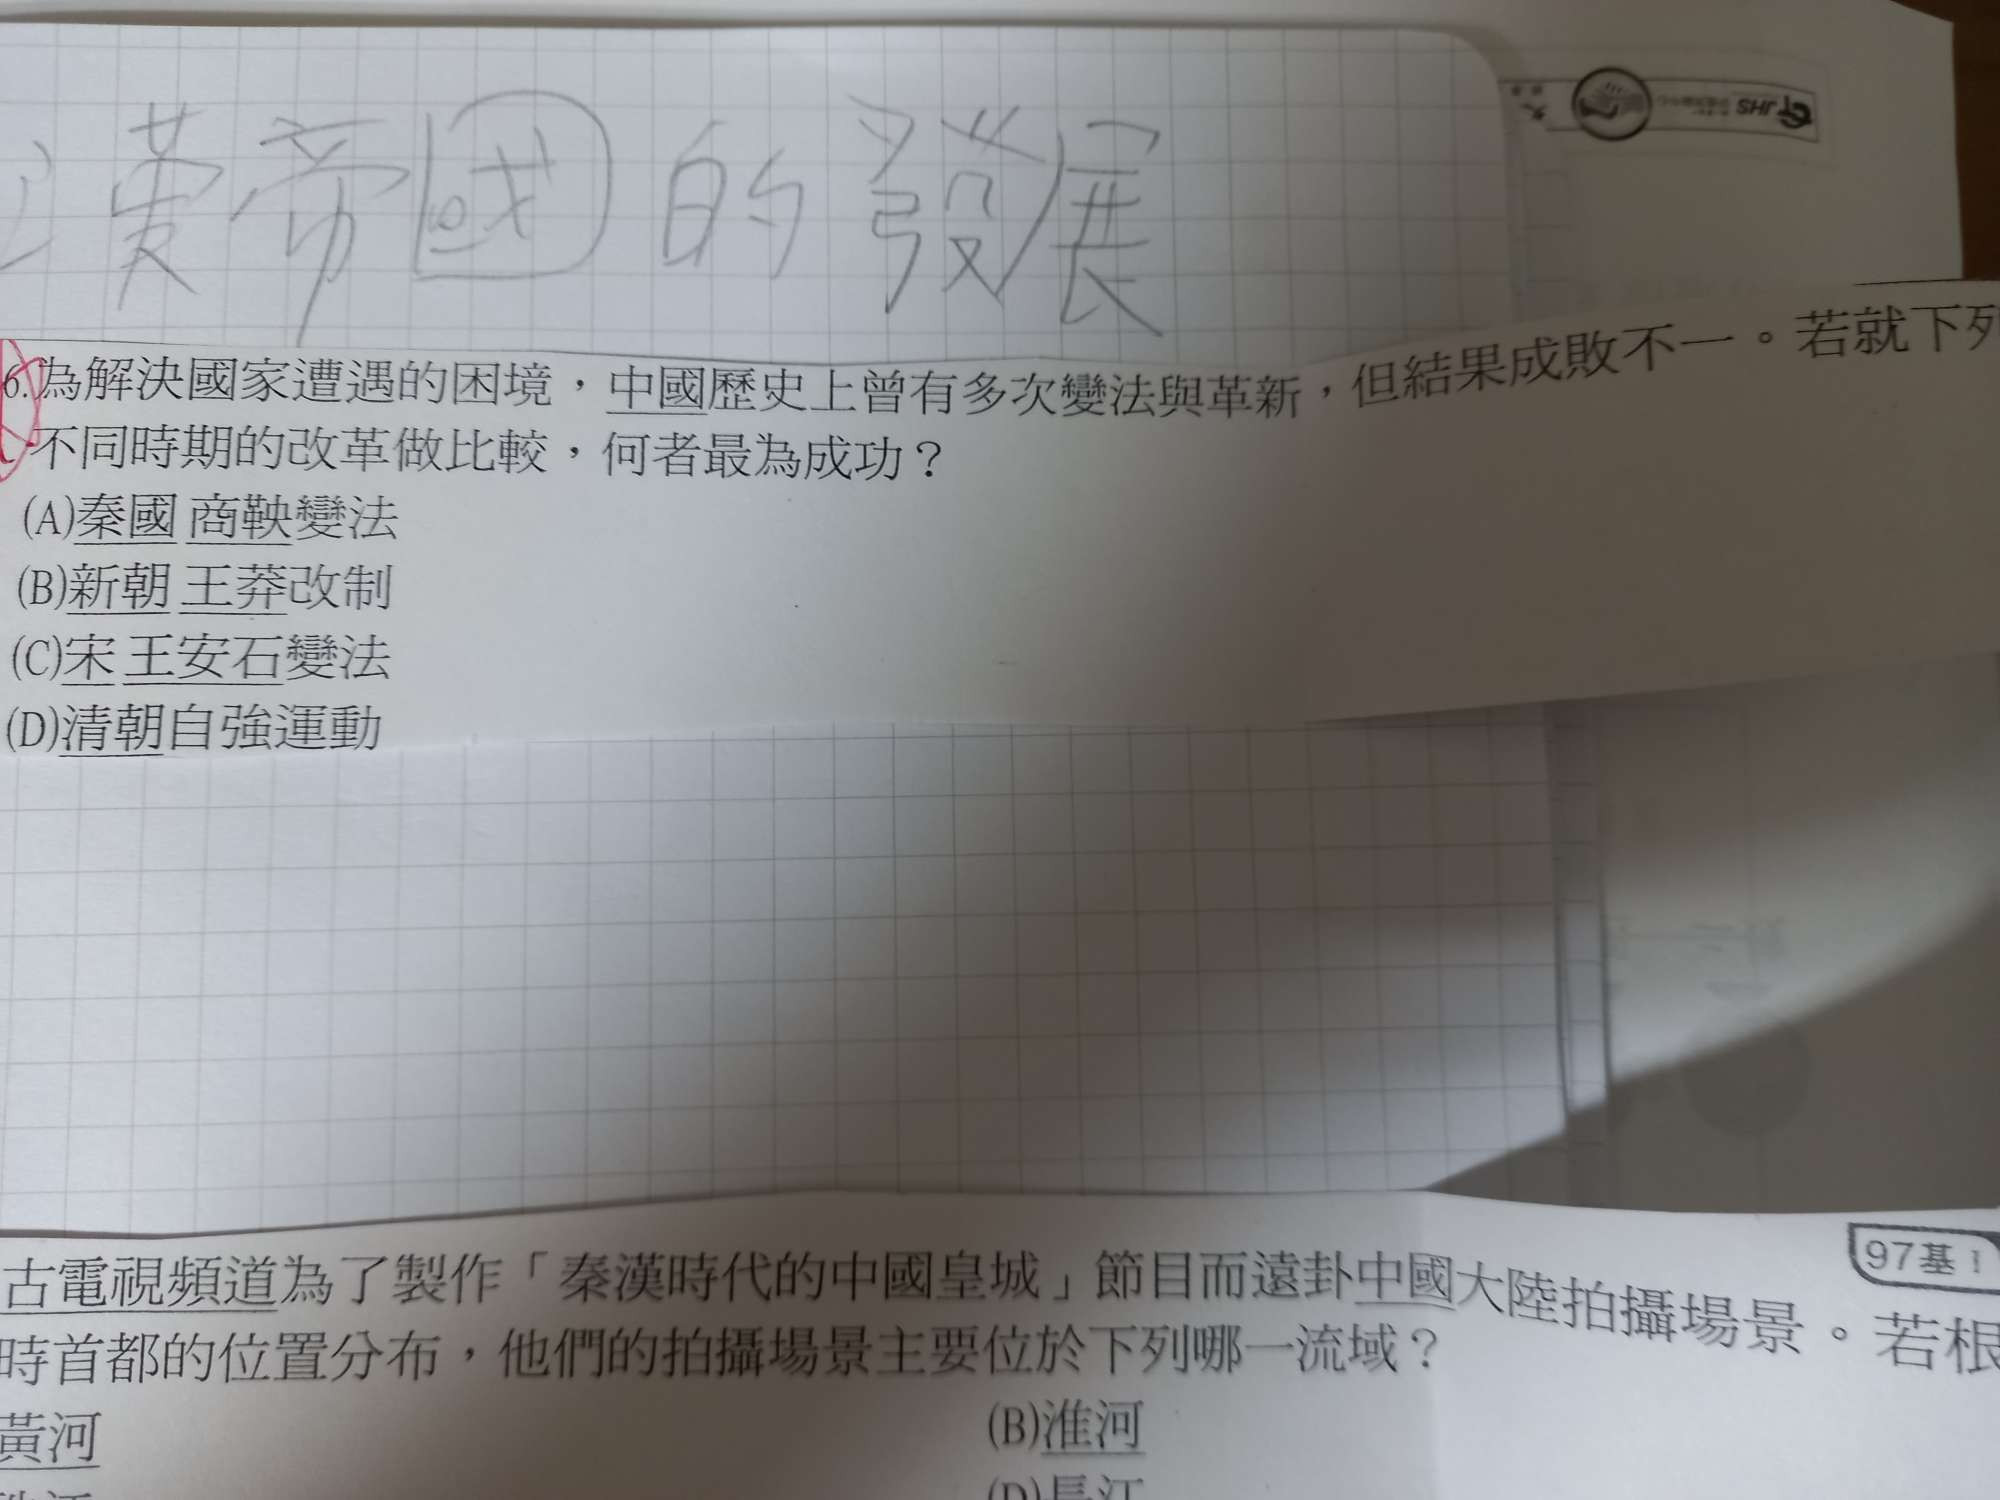 漢帝國的發展
JHS
6.為解決國家遭遇的困境，中國歷史上曾有多次變法與革新，但結果成敗不一。若就下列
不同時期的改革做比較，何者最為成功？
(A)秦國商鞅變法
(B)新朝王莽改制
(C)宋王安石變法
(D)清朝自強運動
97基I
古電視頻道為了製作「秦漢時代的中國皇城」節目而遠赴中國大陸拍攝場景。若根
時首都的位置分布，他們的拍攝場景主要位於下列哪一流域？
黃河
(B)淮河
(D)長江